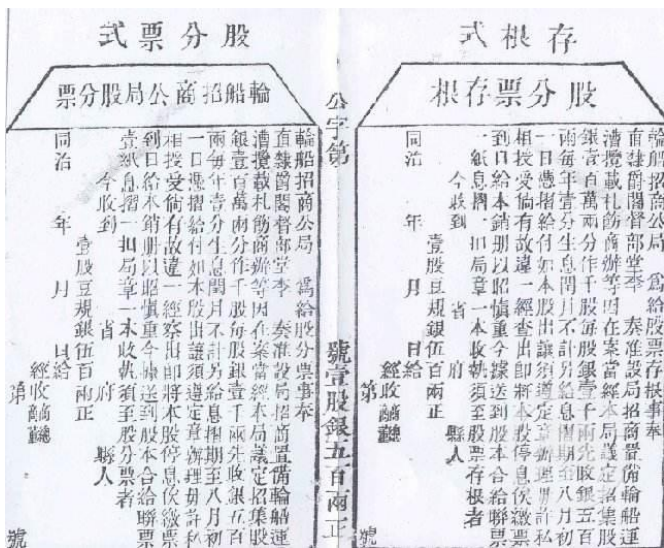 存根式
股分票存根
輪船招商公局　爲給股分票存根事奉
直隸爵閣督部堂李　奏准設局招商置備輪船運
漕攬載札飭商辦等因在案當經本局議定招集股
銀壹百萬兩分作千股每股銀壹千兩先收銀五百
兩每年壹分生息閏月不計另給息摺期至八月初
一日憑摺給付如本股出讓須遵定章辦理毋許私
相授受倘有故違一經查出即將本股停息俟繳票
到日給本銷册以昭慎重今據送到股本合給聯票
一紙息摺一扣局章一本收執須至股票存根者
今收到　省　府　縣人
壹股豆規銀伍百兩正
同治　年　月　日給
經收
第　號
公字第　號壹股銀五百兩正
股分票式
輪船招商公局股分票
輪船招商公局　爲給股分票事奉
直隸爵閣督部堂李　奏准設局招商置備輪船運
漕攬載札飭商辦等因在案當經本局議定招集股
銀壹百萬兩分作千股每股銀壹千兩先收銀五百
兩每年壹分生息閏月不計另給息摺期至八月初
一日憑摺給付如本股出讓須遵定章辦理毋許私
相授受倘有故違一經察出即將本股停息俟繳票
到日給本銷册以昭慎重今據送到股本合給聯票
壹紙息摺一扣局章一本收執須至股分票者
今收到　省　府　縣人
壹股豆規銀伍百兩正
同治　年　月　日給
經收
第　號